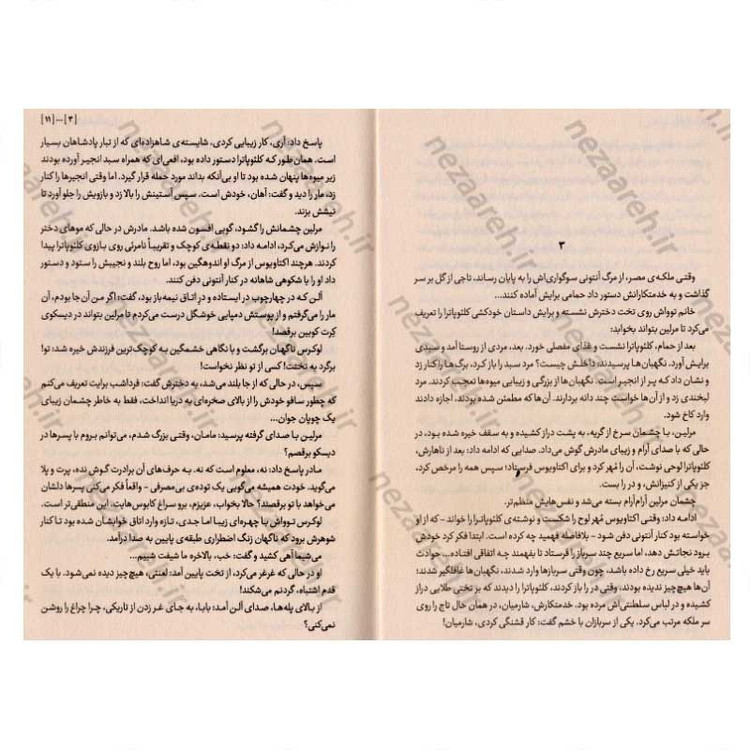 ۳
وقتی ملکه‌ی مصر، از مرگ آنتونی سوگواری‌اش را به پایان رساند، تاجی از گل بر سر
گذاشت و به خدمتکارانش دستور داد حمامی برایش آماده کنند...
خانم توواش روی تخت دخترش نشسته و برایش داستان خودکشی کلئوپاترا را تعریف
می‌کرد تا مرلین بتواند بخوابد:
بعد از حمام، کلئوپاترا نشست و غذای مفصلی خورد. بعد، مردی از روستا آمد و سبدی
برایش آورد. نگهبان‌ها پرسیدند: داخلش چیست؟ مرد سبد را باز کرد، برگ‌ها را کنار زد
و نشان داد که پر از انجیر است. نگهبان‌ها از بزرگی و زیبایی میوه‌ها تعجب کردند. مرد
لبخندی زد و از آن‌ها خواست چند دانه بردارند. آن‌ها که مطمئن شده بودند، اجازه دادند
وارد کاخ شود.
مرلین، با چشمان سرخ از گریه، به پشت دراز کشیده و به سقف خیره شده بود، در
حالی که با صدای آرام و زیبای مادرش گوش می‌داد. صدایی که ادامه داد: بعد از ناهارش،
کلئوپاترا لوحی نوشت، آن را مُهر کرد و برای اکتاویوس فرستاد؛ سپس همه را مرخص کرد،
جز یکی از کنیزانش، و در را بست.
چشمان مرلین آرام‌آرام بسته می‌شد و نفس‌هایش منظم‌تر.
ادامه داد: وقتی اکتاویوس مُهر لوح را شکست و نوشته‌ی کلئوپاترا را خواند - که از او
خواسته بود کنار آنتونی دفن شود - بلافاصله فهمید چه کرده است. ابتدا فکر کرد خودش
برود نجاتش دهد، اما سریع چند سرباز را فرستاد تا بفهمند چه اتفاقی افتاده... حوادث
باید خیلی سریع رخ داده باشد، چون وقتی سربازها وارد شدند، نگهبان‌ها غافلگیر شدند؛
آن‌ها هیچ‌چیز ندیده بودند. وقتی در را باز کردند، کلئوپاترا را دیدند که بر تختی طلایی دراز
کشیده و در لباس سلطنتی‌اش مرده بود. خدمتکارش، شارمیان، در همان حال تاج را روی
سر ملکه مرتب می‌کرد. یکی از سربازان با خشم گفت: کار قشنگی کردی، شارمیان!
[۳]...[۱۱]
پاسخ داد: آری، کار زیبایی کردی، شایسته‌ی شاهزاده‌ای که از تبار پادشاهان بسیار
است. همان‌طور که کلئوپاترا دستور داده بود، افعی‌ای که همراه سبد انجیر آورده بودند
زیر میوه‌ها پنهان شده بود تا او بی‌آنکه بداند مورد حمله قرار گیرد. اما وقتی انجیرها را کنار
زد، مار را دید و گفت: آهان، خودش است. سپس آستینش را بالا زد و بازویش را جلو آورد تا
نیشش بزند.
مرلین چشمانش را گشود، گویی افسون شده باشد. مادرش در حالی که موهای دختر
را نوازش می‌کرد، ادامه داد: دو نقطه‌ی کوچک و تقریباً نامرئی روی بازوی کلئوپاترا پیدا
کردند. هرچند اکتاویوس از مرگ او اندوهگین بود، اما روح بلند و نجیبش را ستود و دستور
داد او را با شکوهی شاهانه در کنار آنتونی دفن کنند.
آلن که در چهارچوب در ایستاده و درِ اتاق نیمه‌باز بود، گفت: اگر من آن‌جا بودم، آن
مار را می‌گرفتم و از پوستش دمپایی خوشگل درست می‌کردم تا مرلین بتواند در دیسکوی
کِرت کوبین برقصد!
لوکرس ناگهان برگشت و با نگاهی خشمگین به کوچک‌ترین فرزندش خیره شد: تو!
برگرد به تختت! کسی از تو نظر نخواست!
سپس، در حالی که از جا بلند می‌شد، به دخترش گفت: فرداشب برایت تعریف می‌کنم
که چطور سافو خودش را از بالای صخره‌ای به دریا انداخت، فقط به خاطر چشمان زیبای
یک چوپان جوان...
مرلین با صدای گرفته پرسید: مامان، وقتی بزرگ شدم، می‌توانم بروم با پسرها در
دیسکو برقصم؟
مادر پاسخ داد: نه، معلوم است که نه. به حرف‌های آن برادرت گوش نده، پرت و پلا
می‌گوید. خودت همیشه می‌گویی یک توده‌ی بی‌مصرفی - واقعاً فکر می‌کنی پسرها دلشان
می‌خواهد با تو برقصند؟ حالا بخواب، عزیزم، برو سراغ کابوس‌هایت، این منطقی‌تر است.
لوکرس توواش با چهره‌ای زیبا اما جدی، تازه وارد اتاق خوابشان شده بود تا کنار
شوهرش برود که ناگهان زنگ اضطراری طبقه‌ی پایین به صدا درآمد.
می‌شیما آهی کشید و گفت: خب، بالاخره ما شیفت شبیم...
او در حالی که غرغر می‌کرد، از تخت پایین آمد: لعنتی، هیچ‌چیز دیده نمی‌شود. با یک
قدم اشتباه، گردنم می‌شکند!
از بالای پله‌ها، صدای آلن آمد: بابا، به جای غر زدن از تاریکی، چرا چراغ را روشن
نمی‌کنی؟
nezaareh.ir
nezaareh.ir
nezaareh.ir
nezaareh.ir